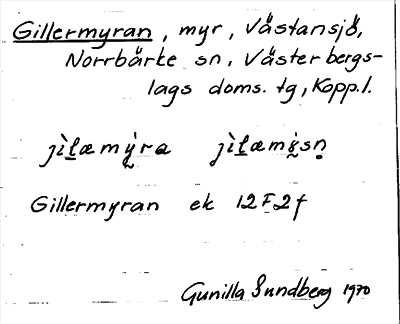 Gillermyran, myr, Västansjö,
Norrbärke sn, Väster bergs-
lags doms. tg, Kopp. l.
jìḻæmỳ̰ra jìḻæmỳ̰sṇ
Gillermyran ek 12F2f
Gunilla Sundberg 1970